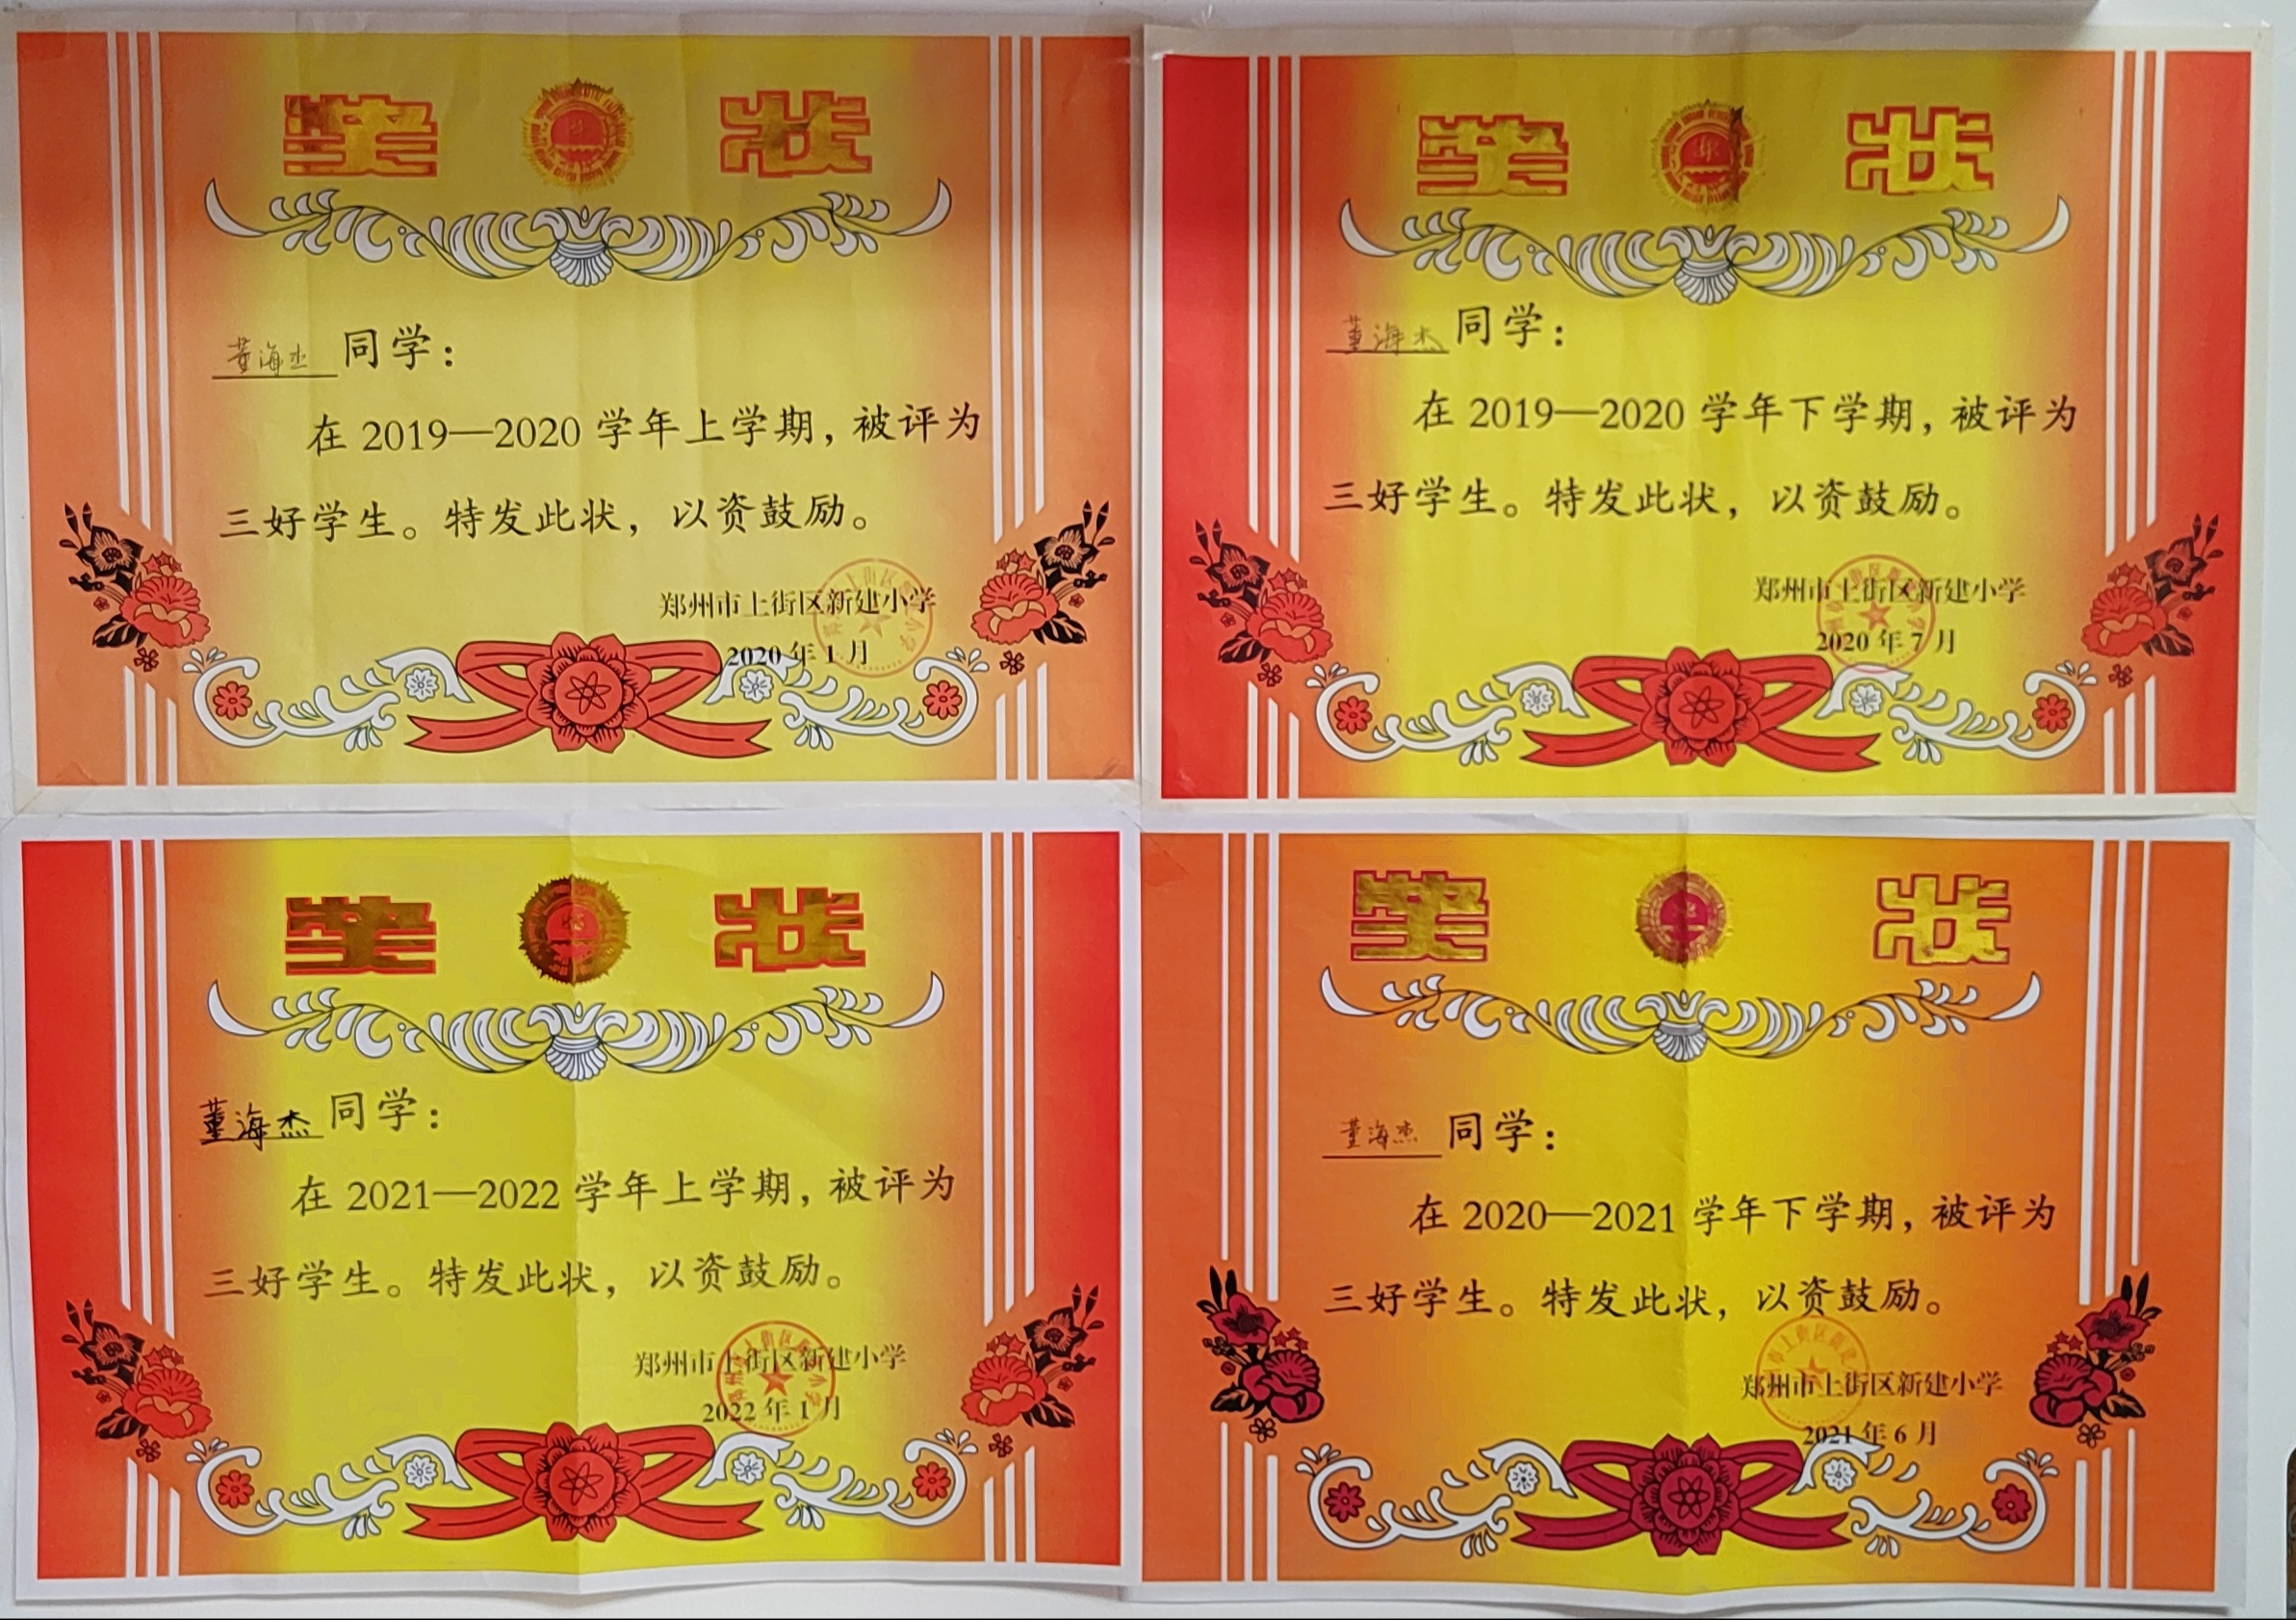 奖 状
董海杰 同学：
在 2019—2020 学年上学期，被评为
三好学生。特发此状，以资鼓励。
郑州市上街区新建小学
2020 年 1 月
奖 状
董海杰 同学：
在 2019—2020 学年下学期，被评为
三好学生。特发此状，以资鼓励。
郑州市上街区新建小学
2020 年 7 月
奖 状
董海杰 同学：
在 2021—2022 学年上学期，被评为
三好学生。特发此状，以资鼓励。
郑州市上街区新建小学
2022 年 1 月
奖 状
董海杰 同学：
在 2020—2021 学年下学期，被评为
三好学生。特发此状，以资鼓励。
郑州市上街区新建小学
2021 年 6 月